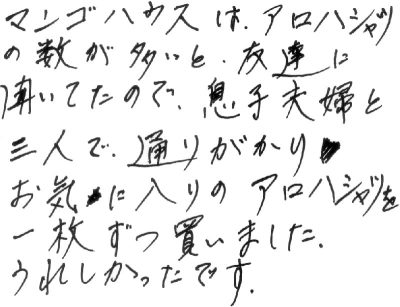 マンゴハウスは、アロハシャツ
の数が多いと、友達に
聞いてたので、息子夫婦と
三人で、通りがかり
お気に入りのアロハシャツを
一枚ずつ買いました、
うれしかったです。